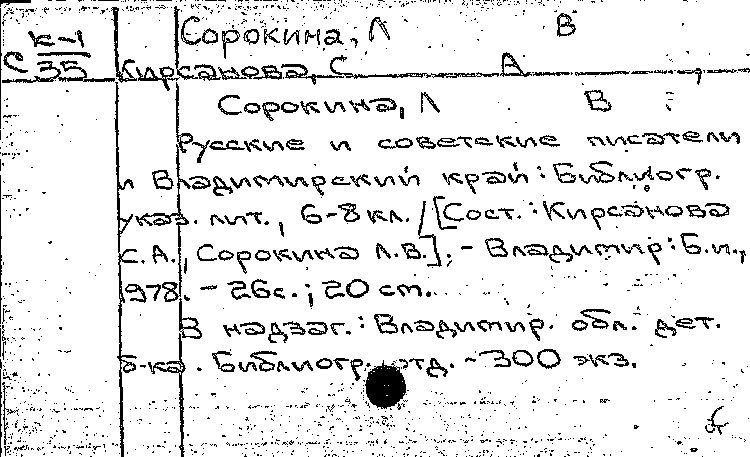 К-1 Сорокина, Л В
С 35 Кирсанова, С А ,
Сорокина, Л В
Русские и советские писатели
и Владимирский край: Библиогр.
указ. лит., 6-8 кл. / [Сост.: Кирсанова
С.А., Сорокина Л.В.]. - Владимир: Б.и.,
1978. - 26с.; 20 cm.
В надзаг.: Владимир. обл. дет.
б-ка. Библиогр. отд. - 300 экз.